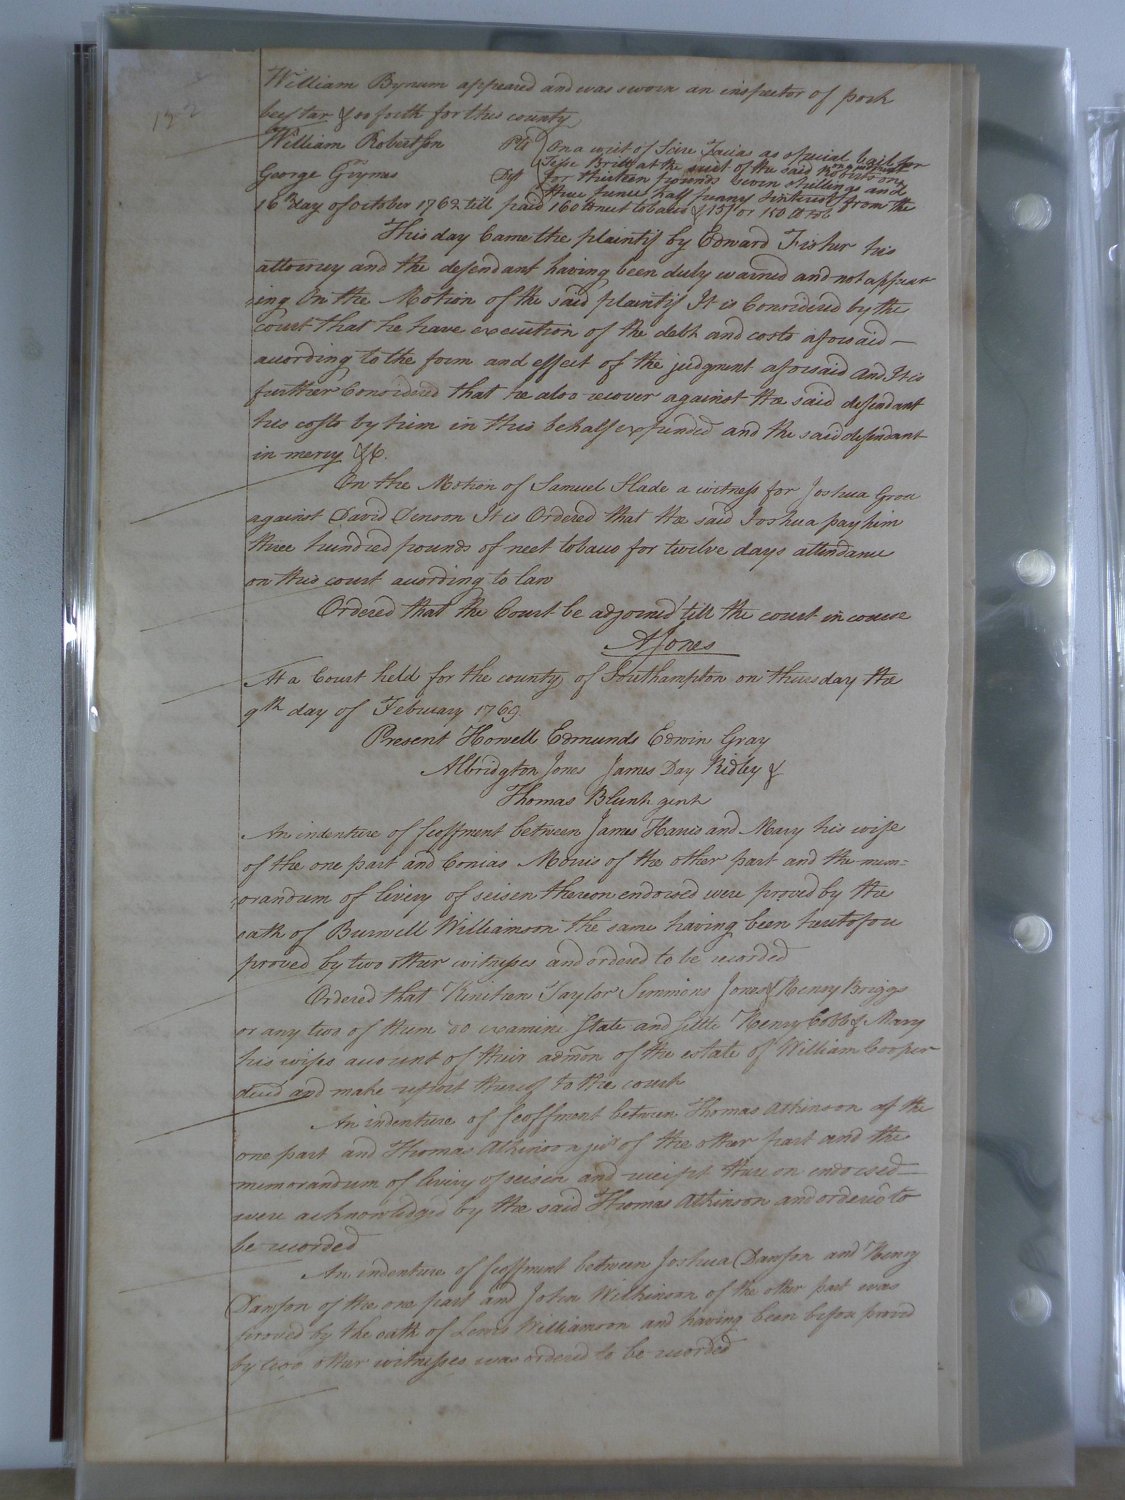 122
William Bynum appeared and was sworn an inspector of pork
beef tar & so forth for this county
William Robertson Plt On a writ of Scire Facias as special bail for
Jesse Britt at the suit of the said Robertson
George Gurnas Dft for thirteen pounds seven shillings and
three pence half penny Interest from the
16th day of October 1762 till paid 160 lb neet tobacco & 15/ or 150 lb tob
This day Came the plaintif by Edward Fisher his
attorney and the defendant having been duly warned and not appear
ing On the Motion of the said plaintif It is Considered by the
court that he have execution of the debt and costs aforesaid —
according to the form and effect of the judgment aforesaid And It is
further Considered that he also recover against the said defendant
his costs by him in this behalf expended and the said defendant
in mercy &C.
On the Motion of Samuel Slade a witness for Joshua
against David Denson It is Ordered that the said Joshua pay him
three hundred pounds of neet tobacco for twelve days attendance
on this court according to law
Ordered that the Court be adjorned till the court in course
AJones
At a Court held for the county of Southampton on thursday the
9th day of February 1769
Present Howell Edmunds Edwin Gray
Albridgton Jones James Day Ridley &
Thomas Blunt gent
An indenture of feoffment between James Harris and Mary his wife
of the one part and Morris of the other part and the mem=
orandum of livery of seisen thereon endorsed were proved by the
oath of Burwell Williamson the same having been heretofore
proved by two other witnesses and ordered to be recorded
Ordered that Kinchen Taylor Simmons Jones & Henry Briggs
or any two of them do examine State and settle Henry Cobb & Mary
his wifes account of their admon of the estate of William Cooper
deced and make report thereof to the court
An indenture of feoffment between Thomas Atkinson of the
one part and Thomas Atkinson jur of the other part and the
memorandum of livery of seisin and receipt there on endorsed —
were acknowledged by the said Thomas Atkinson and ordered to
be recorded
An indenture of feoffment between Joshua Dawson and Henry
Dawson of the one part and John Wilkinson of the other part was
proved by the oath of Lewis Williamson and having been before proved
by two other witnesses was ordered to be recorded